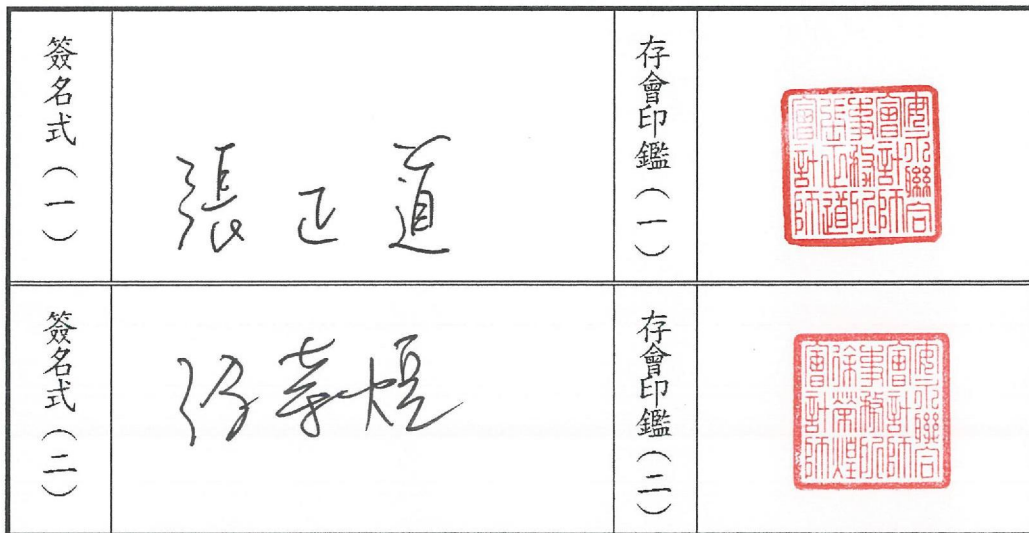 簽名式（一）
張正道
存會印鑑（一）
安永聯合
會計師
事務所
張正道
會計師
簽名式（二）
徐榮煌
存會印鑑（二）
安永聯合
會計師
事務所
徐榮煌
會計師